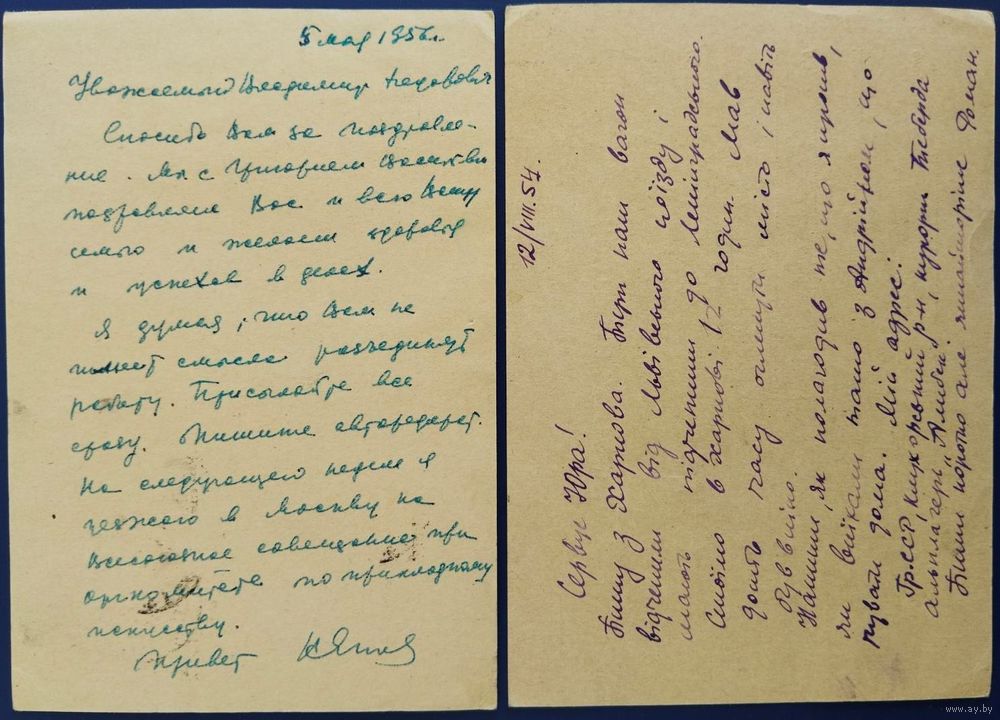 5 мая 1956 г.
Уважаемый Владимир
Спасибо Вам за поздравле-
ние. Мы с Григорием
поздравляем Вас и всю Вашу
семью и желаем здоровья
и успехов в делах.
Я думаю, что Вам не
имеет смысла
работу. Присылайте все
сразу. Пишите автореферат.
На следующей неделе я
уезжаю в Москву на
Всесоюзное совещание при
оргкомитете по прикладному
искусству.
Привет
12/VIII.54.
Сервус Юра!
Пишу з Харкова. Тепер наш вагон
відчепили від Львівського поїзду і
мають підчепити до Ленінградського.
Стоїмо в Харкові 12 годин. Мав
досить часу оглянути місто і навіть
Напиши, як полагодив те, що я просив,
як там з Андрієм, що
чувати дома. Мій адрес:
Гр.ССР, р-н, курорт Теберда
альплагерь "Алибек".
Пиши коротко але Роман.
www.ay.by